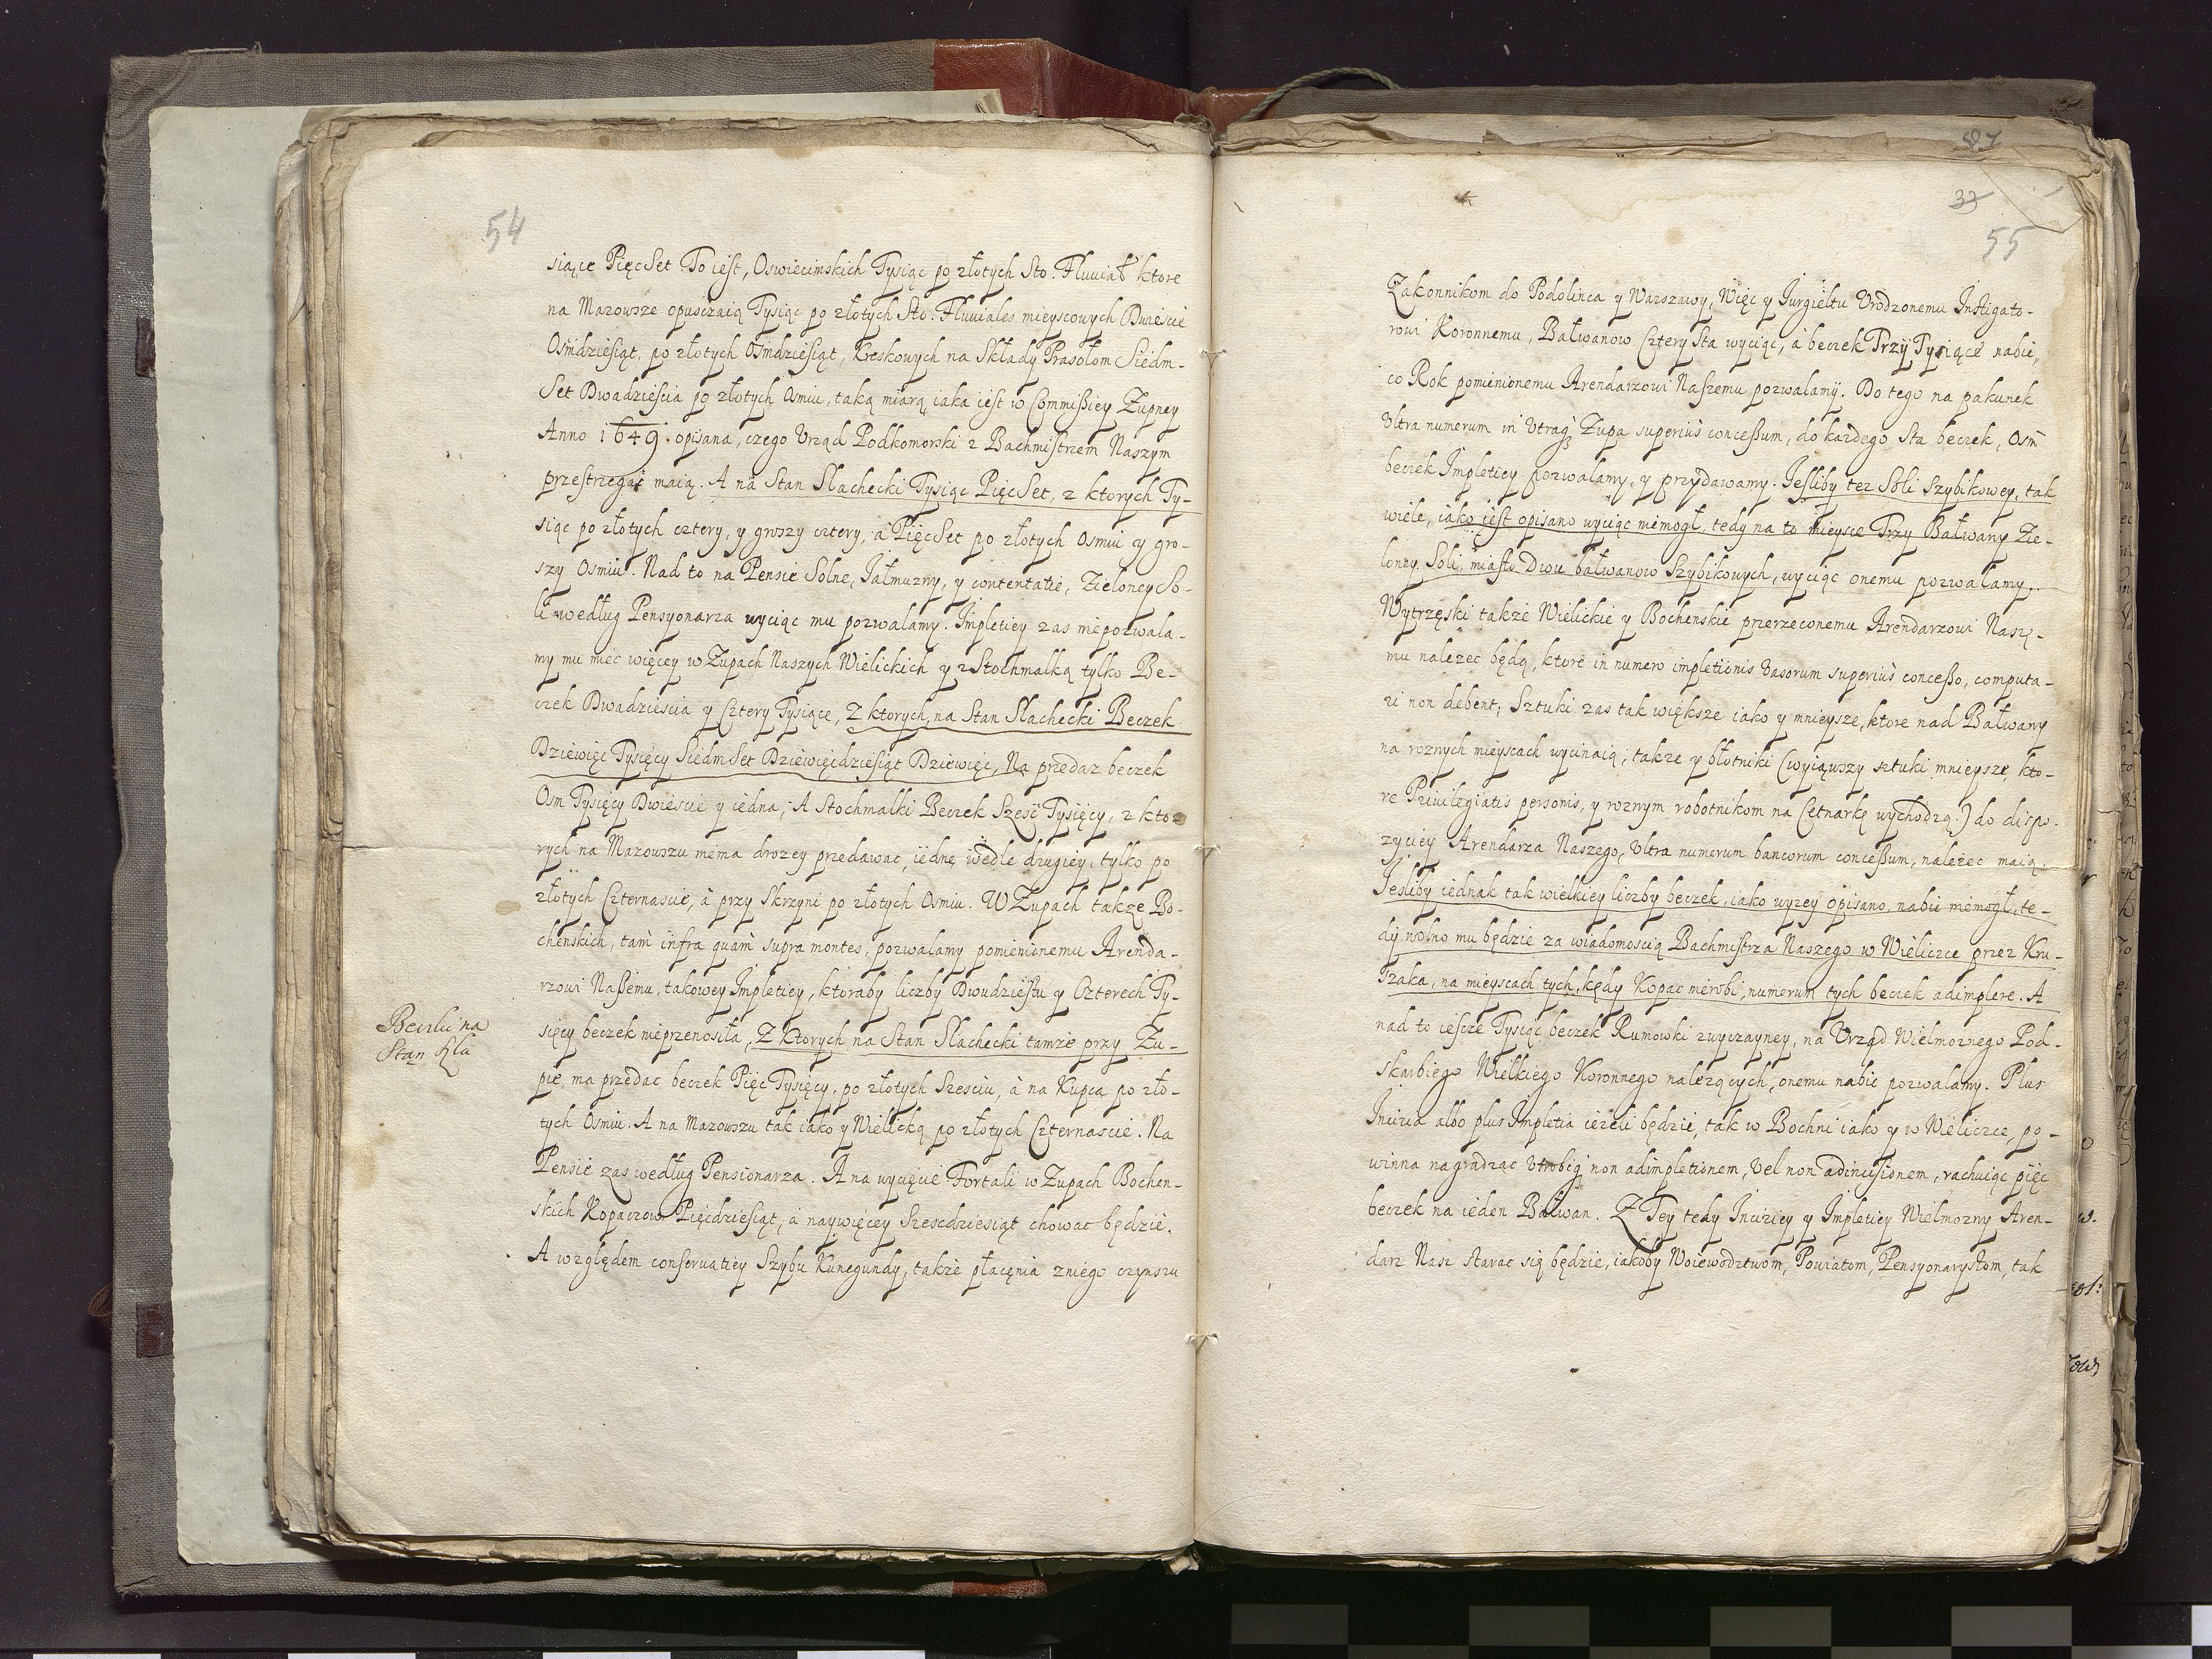 54
siące PięcSet To iest, Oswiecimskich Tysiąc po złotych Sto. Fluuiał ktore
na Mazowsze opuszczaią Tysiąc po złotych Sto. Fluuiales mieyscowych Dwieście
Osmdziesiąt. po złotych Osmdziesiąt, Kreskowych na Składy Prasołom Siedm-
Set Dwadzieścia po złotych Osmiu, taką miarą iaka iest w Commißiey Zupney
Anno 1649. opisana, czego Vrząd Podkomorski z Bachmistrzem Naszym
przestrzegać maią. A na Stan Slachecki Tysiąc PięcSet, z ktorych Ty-
siąc po złotych cztery, y groszy cztery, a PięcSet po złotych Osmiu y gro-
szy Osmiu. Nad to na Pensie Solne, Jałmuzny, y contentatie, Zieloney So-
li według Pensyonarza wyciąc mu pozwalamy. Impletiey zas niepozwala-
my mu miec więcey w Zupach Naszych Wielickich y z Stochmalką tylko Be-
czek Dwadzieścia y Cztery Tysiące, Z ktorych, na Stan Slachecki Beczek
Dziewięc Tysięcy SiedmSet Dziewięcdziesiąt Dziewięc, Na przedaz beczek
Osm Tysięcy Dwieście y iedna, A Stochmalki Beczek Szesc Tysięcy, z kto-
rych na Mazowszu niema drozey przedawac, iednę wedle drugiey, tylko po
złotych Czternascie, à przy Skrzyni po złotych Osmiu. W Zupach takze Bo-
chenskich, tam infra quam supra montes, pozwalamy pomienionemu Arenda-
rzowi Naßemu, takowey Impletiey, ktoraby liczby Dwudziestu y Czterech Ty-
sięcy beczek nieprzenosiła, Z Ktorych na Stan Slachecki tamze przy Zu-
Beczki na
Stan Sla
pie, ma przedac beczek Pięc Tysięcy. po złotych Szesciu, à na Kupca po zło-
tych Osmiu. A na Mazowszu tak iako y Wielicką po złotych Czternascie. Na
Pensie zas według Pensionarza. A na wycięcie Fortali w Zupach Bochen-
skich Kopaczow Pięcdziesiąt, a naywięcey Szescdziesiąt chowac będzie.
A względem conseruatiey Szybu Kunegundy, takze płacęnia zniego czynszu
87
33
55
Zakonnikom do Podolinca y Warszawy, Więc y Iurgieltu Vrodzonemu Instigato-
rowi Koronnemu, Bałwanow Cztery Sta wyciąc, à beczek Trzy Tysiące nabic,
co Rok pomienionemu Arendarzowi Naszemu pozwalamy. Do tego na pakunek
Vltra numerum in Vtraq Zupa superius conceßum, do kazdego Sta beczek, Osm
beczek Impletiey pozwalamy, y przydawamy. Iesliby tez Soli Szybikowey, tak
wiele, iako iest opisano wyciąc niemogł, tedy na to mieysce Trzy Bałwany Zie-
loney Soli, miasto Dwu bałwanow Szybikowych, wyciąc onemu pozwalamy.
Wytrzęski takze Wielickie y Bochenskie przerzeconemu Arendarzowi Nasze-
mu nalezec będą, ktore in numero impletionis Vasorum superius conceßo, computa-
ri non debent; Sztuki zas tak większe iako y mnieysze, ktore nad Bałwany
na roznych mieyscach wycinaią, takze y błotniki (wyiąwszy sztuki mnieysze, kto-
re Priuilegiatis personis, y roznym robotnikom na Cetnarkę wychodzą.) do dispo-
zyciey Arendarza Naszego, Vltra numerum bancorum conceßum, nalezec maią.
Iesliby iednak tak wielkiey liczby beczek, iako wyzey opisano, nabic niemogł, te-
dy wolno mu będzie za wiadomoscią Bachmistrza Naszego w Wieliczce przez Kru-
szaka, na mieyscach tych, kędy Kopac nierobi, numerum tych beczek adimplere. A
nad to iescze Tysiąc beczek Rumowki zwyczayney, na Vrząd Wielmoznego Pod-
skarbiego Wielkiego Koronnego nalezących, onemu nabic pozwalamy. Plus
Incizia albo plus Impletia iezeli będzie, tak w Bochni iako y w Wieliczce, po-
winna nagradzac Vtrobiq non adimpletionem, Vel non adincisionem, rachuiąc pięc
beczek na ieden Bałwan. Z Tey tedy Inciziey y Impletiey Wielmozny Aren-
darz Nasz starac się będzie, iakoby Woiewodztwom, Powiatom, Pensyonarystom, tak